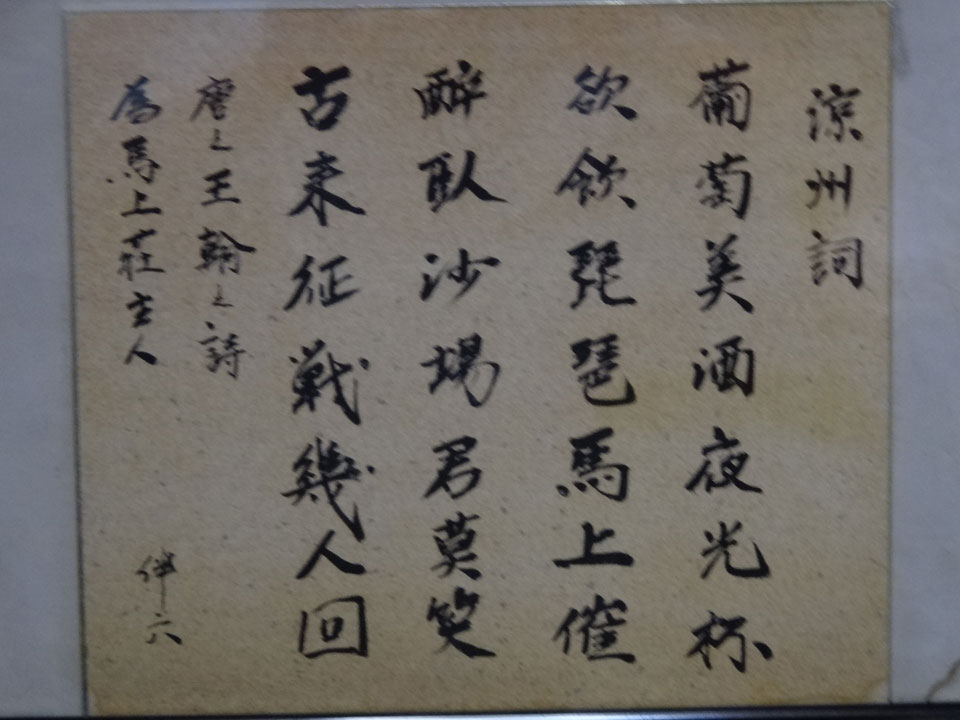 涼州詞
葡萄美酒夜光杯
欲飲琵琶馬上催
酔臥沙場君莫笑
古来征戦幾人回
唐之王翰之詩
為馬上荘主人
伴六